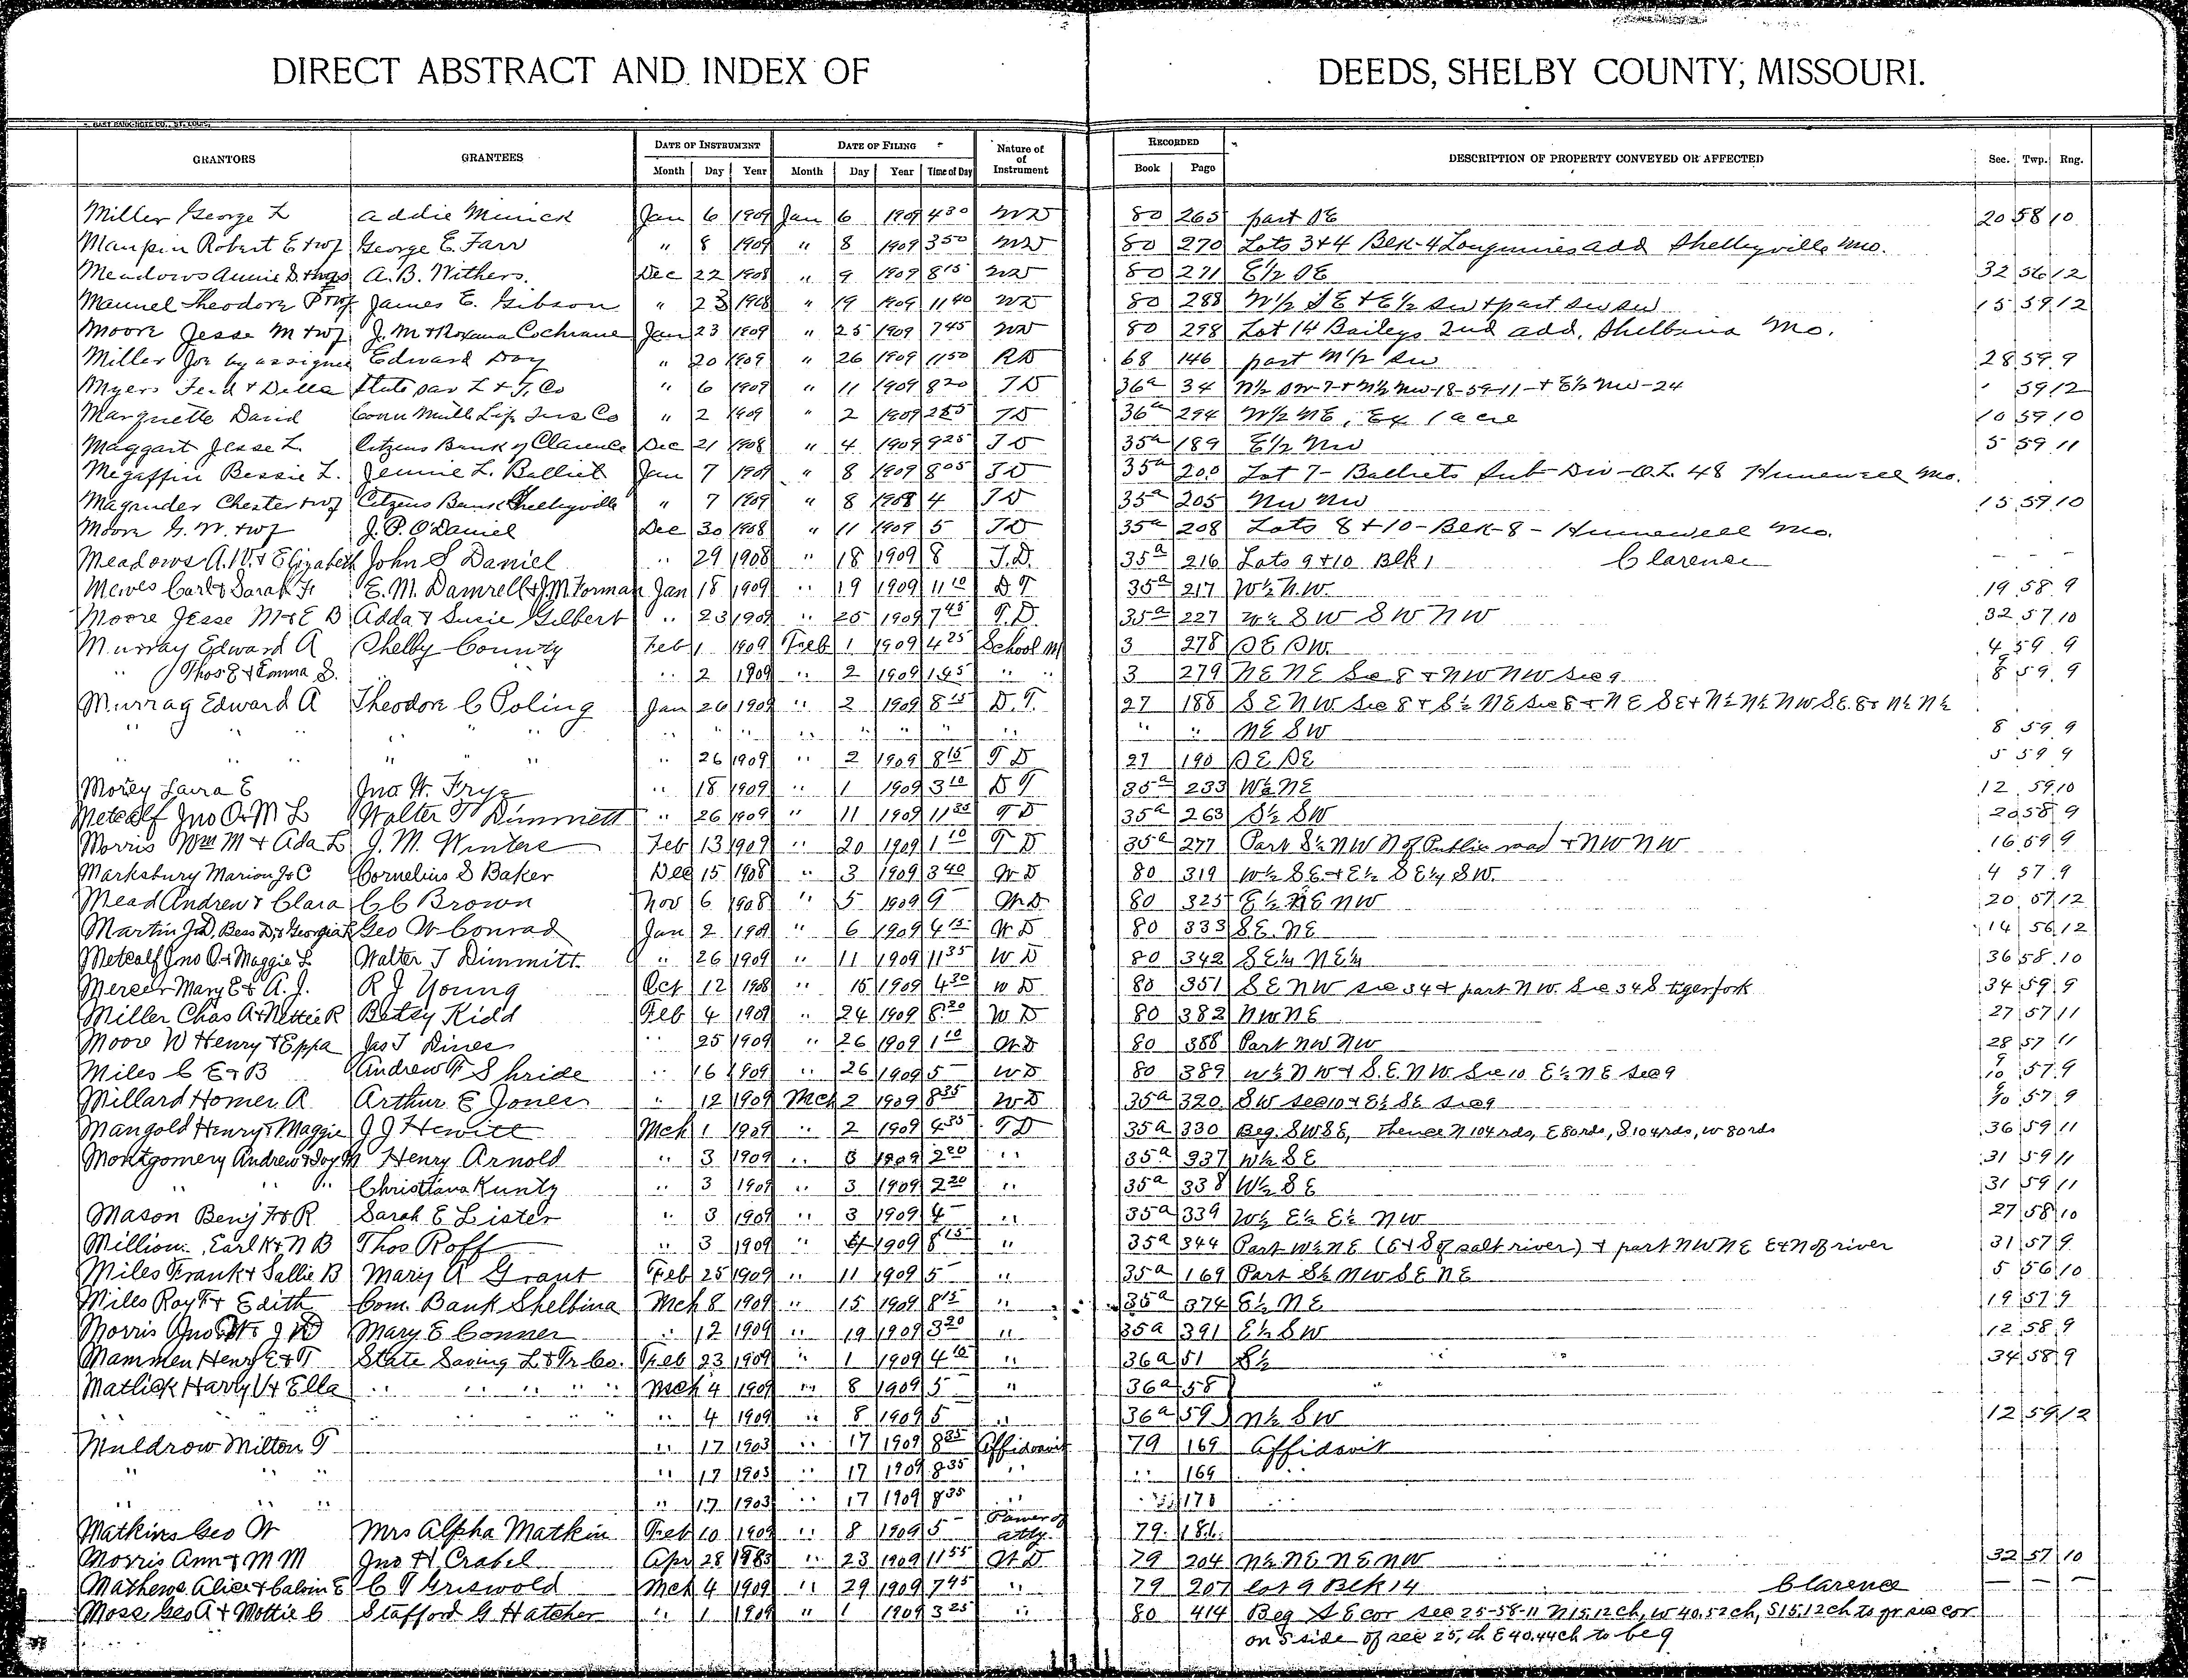 DIRECT ABSTRACT AND INDEX OF DEEDS, SHELBY COUNTY, MISSOURI.
GRANTORS GRANTEES DATE OF INSTRUMENT DATE OF FILING Nature of of Instrument RECORDED DESCRIPTION OF PROPERTY CONVEYED OR AFFECTED Sec. Twp. Rng.
Month Day Year Month Day Year Time of Day Book Page
Miller George L Addie Minick Jan 6 1909 Jan 6 1909 4 30 WD 80 265 part SE 20 58 10
Maupin Robert E + wf George E. Farr " 8 1909 " 8 1909 3 50 WD 80 270 Lots 3+4 Blk-4 Longmires add Shelbyville Mo.
Meadows Annie D. A.B. Withers. Dec 22 1908 " 9 1909 8 15 WD 80 271 E½ SE 32 56 12
Maunel Theodore P + wf James E. Gibson " 23 1908 " 19 1909 11 40 WD 80 288 W½ SE + E½ SW + part SW SW 15 59 12
Moore Jesse M + wf J. M + Roxana Cochrane Jan 23 1909 " 25 1909 7 45 WD 80 298 Lot 14 Baileys 2nd add. Shelbina Mo.
Miller Joe by assignee Edward Doy " 20 1909 " 26 1909 11 50 RD 68 146 part N½ SW 28 59 9
Myers Ferd + Della State Sav L + T. Co " 6 1909 " 11 1909 8 20 TD 36a 34 N½ SW-7-+ N½ NW-18-59-11-+ E½ NW-24 59 12
Marquette David Conn Mutl Life Ins Co " 2 1909 " 2 1909 TD 36a 294 W½ NE, Ex 1 acre 10 59 10
Maggart Jesse L. Citizens Bank of Clarence Dec 21 1908 " 4 1909 9 25 TD 35a 189 E½ NW 5 59 11
Megaffin Bessie L. Jennie L. Balliet Jan 7 1909 " 8 1909 8 05 TD 35a 200 Lot 7- Balliets Sub-Div-O.L. 48 Hunnewell Mo.
Magruder Chester + wf Citzens Bank Shelbyville " 7 1909 " 8 1908 4 TD 35a 205 NW NW 15 59 10
Moore G. W. + wf J. P. O'Daniel Dec 30 1908 " 11 1909 5 TD 35a 208 Lots 8+10-Blk-8-Hunnewell Mo.
Meadows A.W. + Elizabeth John S Daniel " 29 1908 " 18 1909 8 T.D. 35a 216 Lots 9+10 Blk 1 Clarence - - -
Mewes Carl + Sarah F. E. M. Damrell + J.M. Forman Jan 18 1909 " 19 1909 11 10 D T 35a 217 W½ N.W. 19 58 9
Moore Jesse M + E B Adda + Susie Gilbert " 23 1909 " 25 1909 7 45 T.D. 35a 227 W½ SW SW NW 32 57 10
Murray Edward A Shelby County Feb 1 1909 Feb 1 1909 4 25 School M 3 278 SE SW. 4 59 9
" Thos E + Emma S. " 2 1909 " 2 1909 " " 3 279 NE NE Sec 8 + NW NW Sec 9 9 8 59 9
Murray Edward A Theodore C Poling Jan 26 1909 " 2 1909 8 15 D.T. 27 188 SE NW Sec 8 + S½ NE Sec 8 + NE SE + N½ N½ NW SE. 8 + N½ N½
" " " " " " " " " " " " " " " NE SW 8 59 9
" " " " " " 26 1909 " 2 1909 8 15 T D 27 190 SE SE 5 59 9
Morey Laura E Jno W. Frye " 18 1909 " 1 1909 3 10 D T 35a 233 W½ NE 12 59 10
Metcalf Jno O + M L Walter T Dimmett " 26 1909 " 11 1909 11 35 T D 35a 263 S½ SW 20 58 9
Morris Wm M + Ada L J. M. Winters Feb 13 1909 " 20 1909 1 10 T D 35a 277 Part S½ NW N of Public road + NW NW 16 59 9
Marksbury Marion J + C Cornelius S Baker Dec 15 1908 " 3 1909 3 40 W D 80 319 W½ SE. + E½ SE¼ SW. 4 57 9
Mead Andrew + Clara C C Brown Nov 6 1908 " 5 1909 9 - WD 80 325 E½ NE NW 20 57 12
Martin J.D, Bess D, + Georgia Geo W Conrad Jan 2 1909 " 6 1909 4 15 W D 80 333 SE. NE 14 56 12
Metcalf Jno O + Maggie L Walter T Dimmitt. " 26 1909 " 11 1909 11 35 W D 80 342 SE¼ NE¼ 36 58 10
Mercer Mary E + A. J. R J Young Oct 12 1908 " 15 1909 4 30 W D 80 351 SE NW Sec 34 + part NW Sec 34 S tigerfork 34 59 9
Miller Chas A + Nettie R Betsy Kidd Feb 4 1909 " 24 1909 8 20 W D 80 382 NW NE 27 57 11
Moore W Henry + Eppa Jas T Dines " 25 1909 " 26 1909 1 10 WD 80 388 Part NW NW 28 57 11
Miles C E + B Andrew F Shride " 16 1909 " 26 1909 5 - WD 80 389 W½ NW + S.E. NW Sec 10 E½ NE Sec 9 9 10 57 9
Millard Homer A Arthur E Jones " 12 1909 Mch 2 1909 8 35 WD 35a 320 SW Sec 10 + E½ SE Sec 9 9/10 57 9
Mangold Henry T. Maggie J J Hewitt Mch 1 1909 " 2 1909 4 35 T D 35a 330 Beg. SW SE, Thence N 104 rds, E 80 rds, S 104 rds, W 80 rds 36 59 11
Montgomery Andrew + Ivy M Henry Arnold " 3 1909 " 3 1909 2 20 " 35a 337 W½ SE 31 59 11
" " " Christiana Kuntz " 3 1909 " 3 1909 2 20 " 35a 338 W½ SE 31 59 11
Mason Benj F + R Sarah E Lister " 3 1909 " 3 1909 4 - " 35a 339 W½ E½ E½ NW 27 58 10
Million Earl K + N B Thos Roff " 3 1909 " 4 1909 8 15 " 35a 344 Part W½ NE (E + S of salt river) + part NW NE E + N of river 31 57 9
Miles Frank + Sallie B Mary A Grant Feb 25 1909 " 11 1909 5 - " 35a 169 Part S½ NW SE NE 5 56 10
Miles Roy F + Edith Com. Bank Shelbina Mch 8 1909 " 15 1909 8 15 " 35a 374 E½ NE 19 57 9
Morris Jno W + J W D Mary E Conner " 12 1909 " 19 1909 3 20 " 35a 391 E½ SW 12 58 9
Mammen Henry E + T State Saving L + Tr Co. Feb 23 1909 " 1 1909 4 10 " 36a 51 S½ " " 34 58 9
Matlick Harry V + Ella " " " " " Mch 4 1909 " 8 1909 5 - " 36a 58 "
" " " " " " " " 4 1909 " 8 1909 5 " 36a 59 N½ SW 12 59 12
Muldrow Milton T " 17 1903 " 17 1909 8 35 Affidavit 79 169 Affidavit
" " " " 17 1903 " 17 1909 8 35 " " 169 "
" " " " 17 1903 " 17 1909 8 35 " " 170 "
Matkins Geo W Mrs Alpha Matkin Feb 10 1909 " 8 1909 5 - Power of atty. 79 186
Morris Ann + M M Jno H Crabel Apr 28 1883 " 23 1909 11 55 W D 79 204 N½ NE NE NW " " 32 57 10
Mathews Alice + Calvin E C T Griswold Mch 4 1909 " 29 1909 7 45 " 79 207 Lot 9 Blk 14 Clarence - - -
Moss Geo A + Mottie C Stafford G Hatcher " 1 1909 " 1 1909 3 25 " 80 414 Beg SE cor sec 25-58-11 N 15.12 ch, W 40.52 ch, S 15.12 ch to qr sec cor
on S side of sec 25, th E 40.44 ch to beg